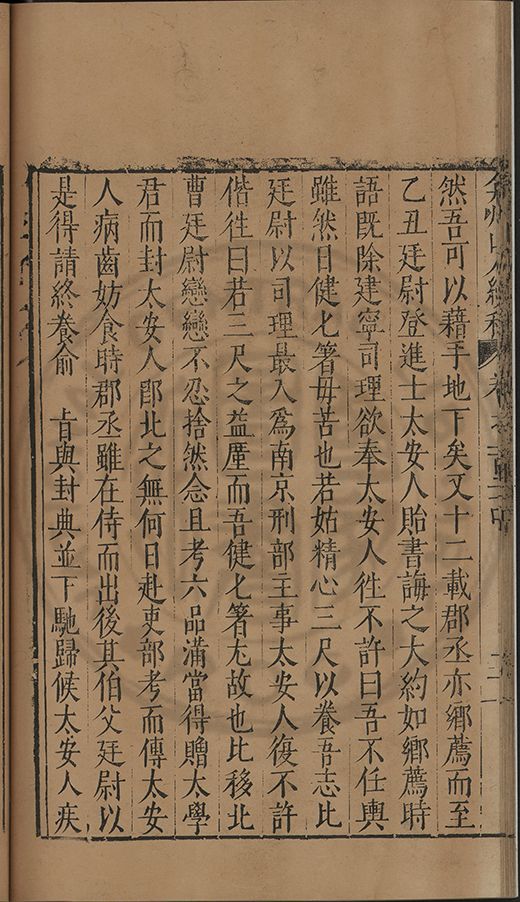 弇州山人續稿 卷之一百二十四
然吾可以藉手地下矣又十二載郡丞亦鄉薦而至
乙丑廷尉登進士太安人貽書誨之大約如鄉薦時
語旣除建寧司理欲奉太安人徃不許曰吾不任輿
雖然日健匕箸毋苦也若姑精心三尺以養吾志比
廷尉以司理最入爲南京刑部主事太安人復不許
偕徃曰若三尺之益厪而吾健匕箸尢故也比移北
曹廷尉戀戀不忍捨然念且考六品滿當得贈太學
君而封太安人卽北之無何日赴吏部考而傳太安
人病齒妨食時郡丞雖在侍而出後其伯父廷尉以
是得請終養俞 㫖與封典並下馳歸候太安人疾